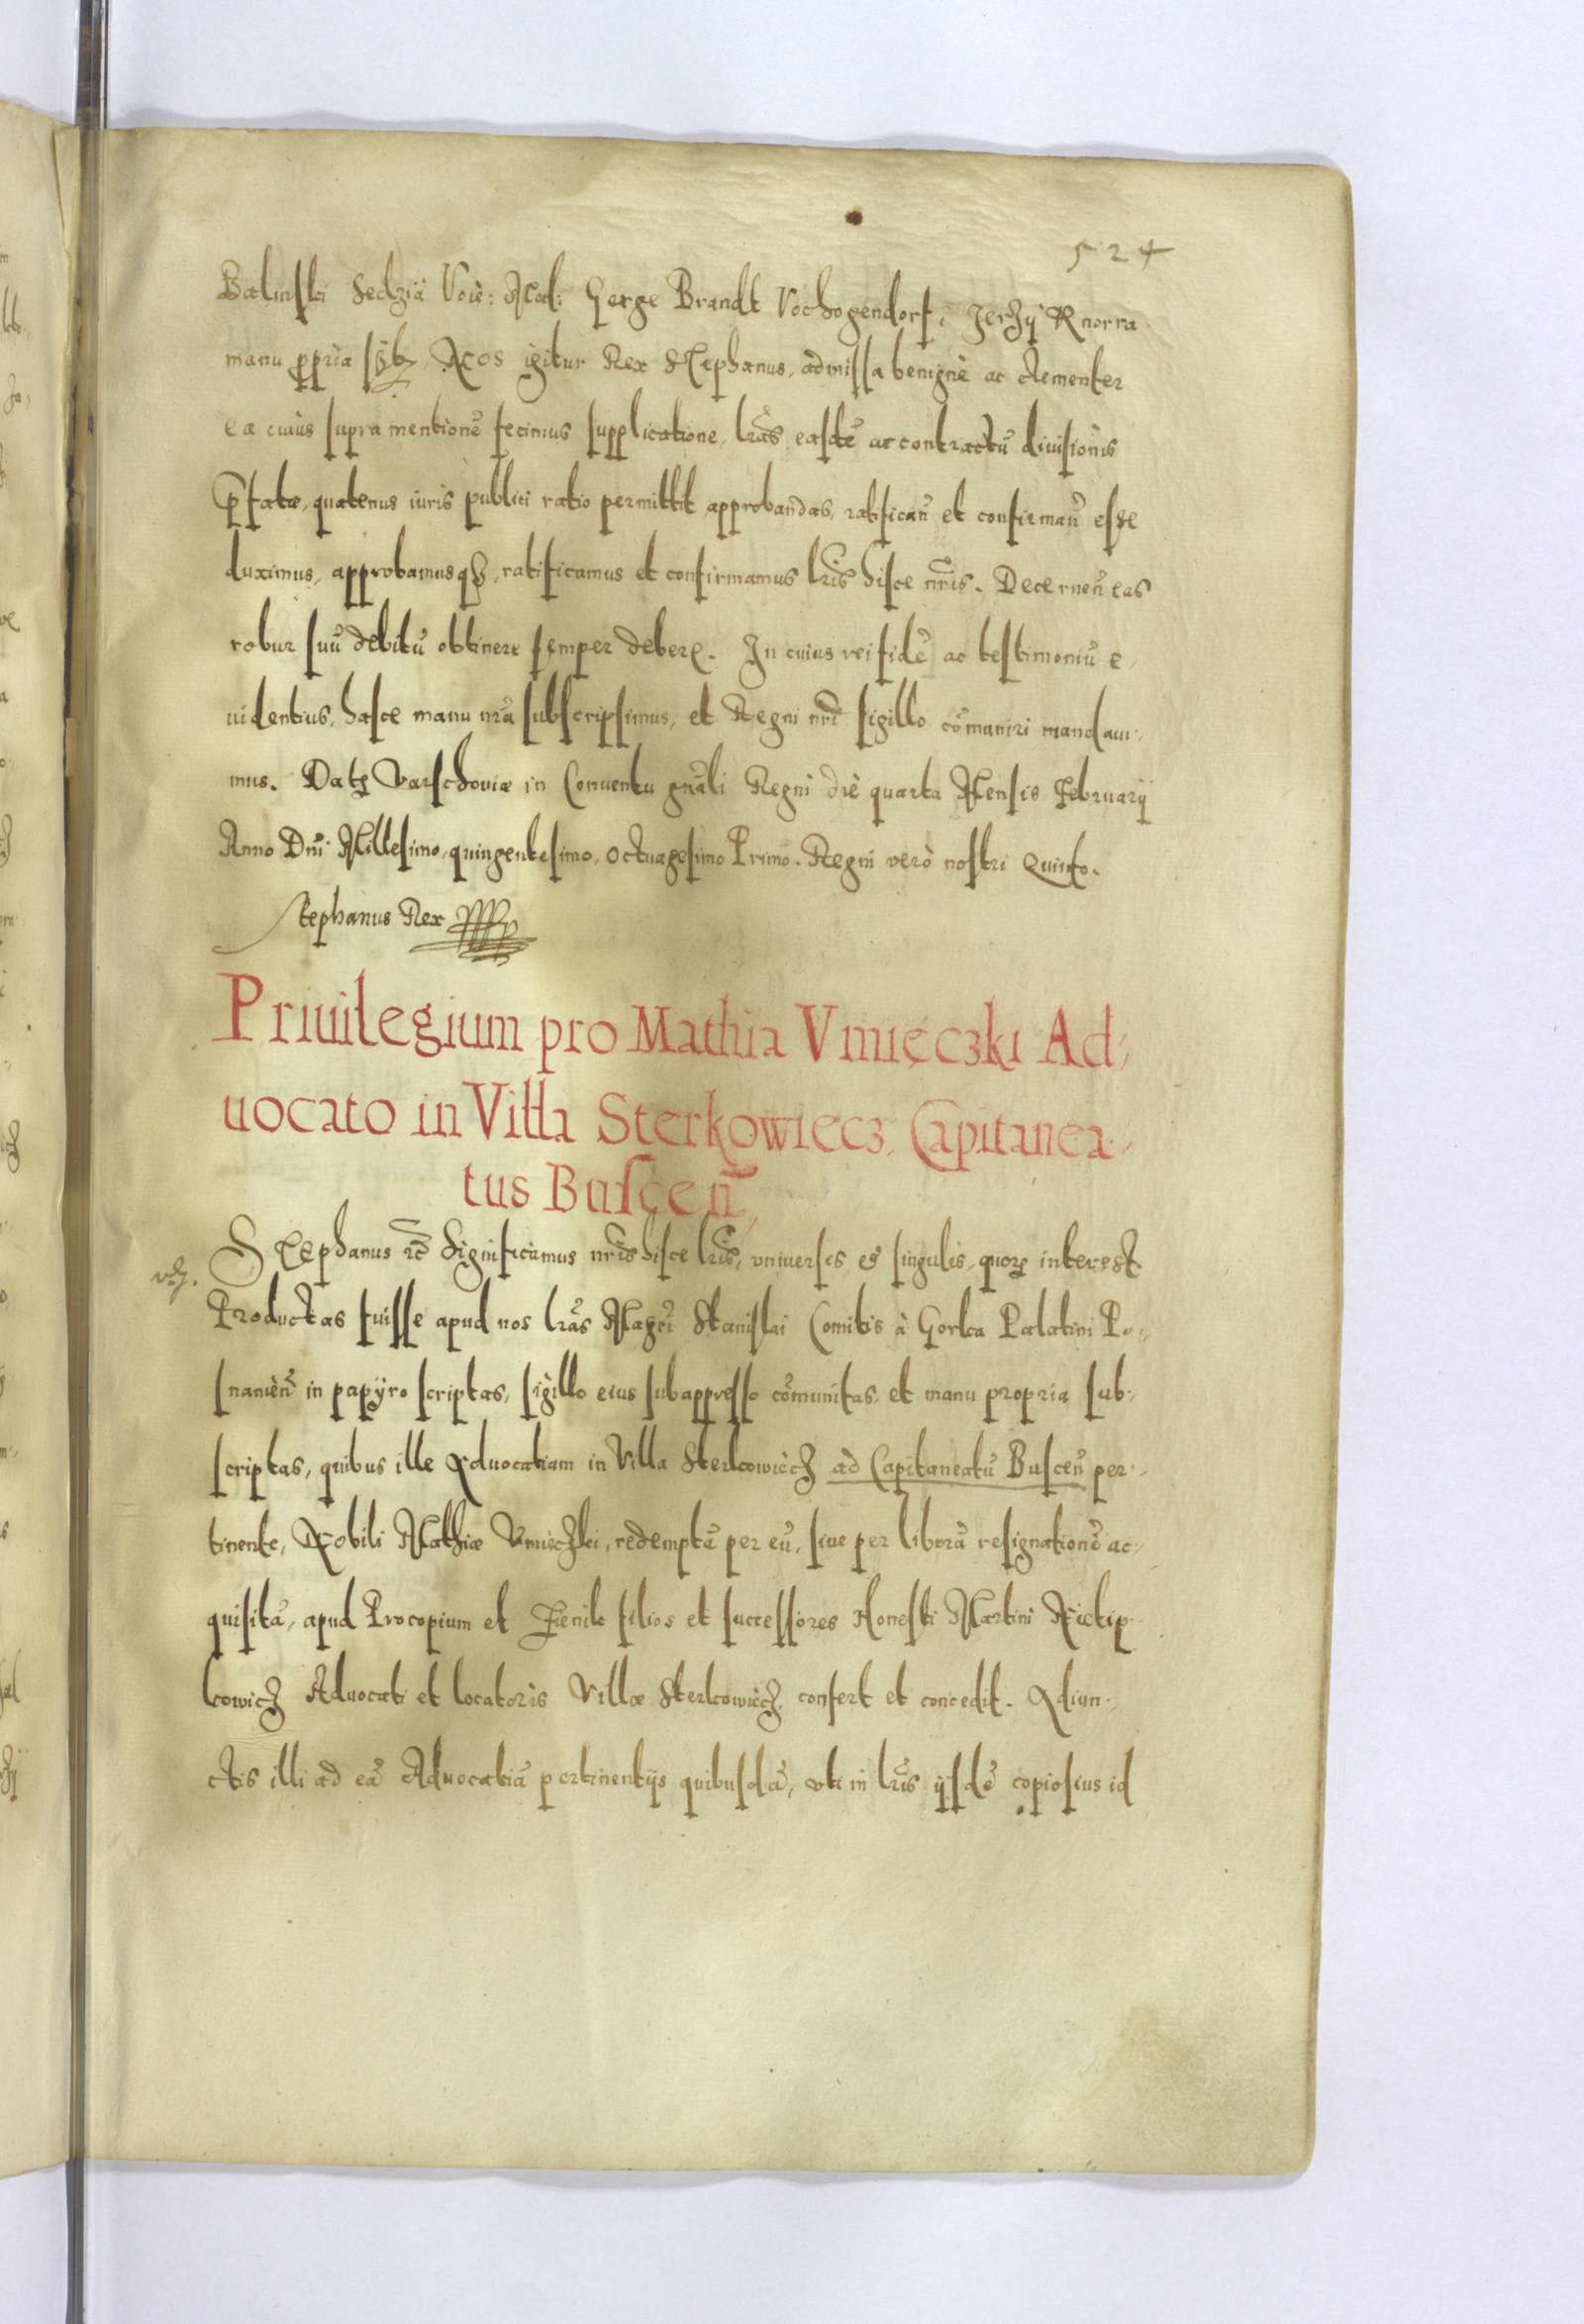 524
Balinski Sedzia Voie: Mal: Gerge Brandt Vochogendorf, Jerzÿ Knorra
manu ppria sst, Nos igitur Rex Stephanus, admissa benignè ac clementer
ea cuius supra mentionē fecimus supplicatione, lrās easdē ac contractū diuisionis
Pfatæ, quatenus iuris publici ratio permittit approbandas, ratificañ et confirmañ esse
duximus, approbamusq₃, ratificamus et confirmamus lris hisce nris. Decerneñ eas
robur suū debitū obtinere semper debere. In cuius rei fidē ac testimoniū e,
uidentius, hasce manu nra subscripsimus, et Regni nri sigillo cōmuniri mandaui,
mus. Dat Varschouiæ in Conuentu gnāli Regni die quarta Mensis Februarij
Anno Dni Millesimo, quingentesimo, octuagesimo Primo. Regni verò nostri Quinto.
Stephanus Rex
Priuilegium pro Mathia Vmieczki Ad,
uocato in Villa Sterkowiecz, Capitanea,
tus Busceñ,
Stephanus rc̄ Significamus nris hisce lris, vniuersis et singulis, quor interest
Productas fuisse apud nos lrās Magci Stanislai Comitis à Gorka Palatini Po,
snanieñ in papÿro scriptas, sigillo eius subappresso cōmunitas, et manu propria sub,
scriptas, quibus ille Aduocatiam in Villa Sterkowiecz ad Capitaneatū Busceñ per,
tinente, Nobili Mathiæ Vmieczki, redemptā per eū, siue per liberā resignationē ac,
quisitā, apud Procopium et Fienik filios et successores Honesti Martini
kowicz Aduocati et locatoris Villæ Sterkowiecz, confert et concedit. Adiun,
ctis illi ad eā Aduocatiā pertinentijs quibusdā, vti in lris ijsdē copiosius id